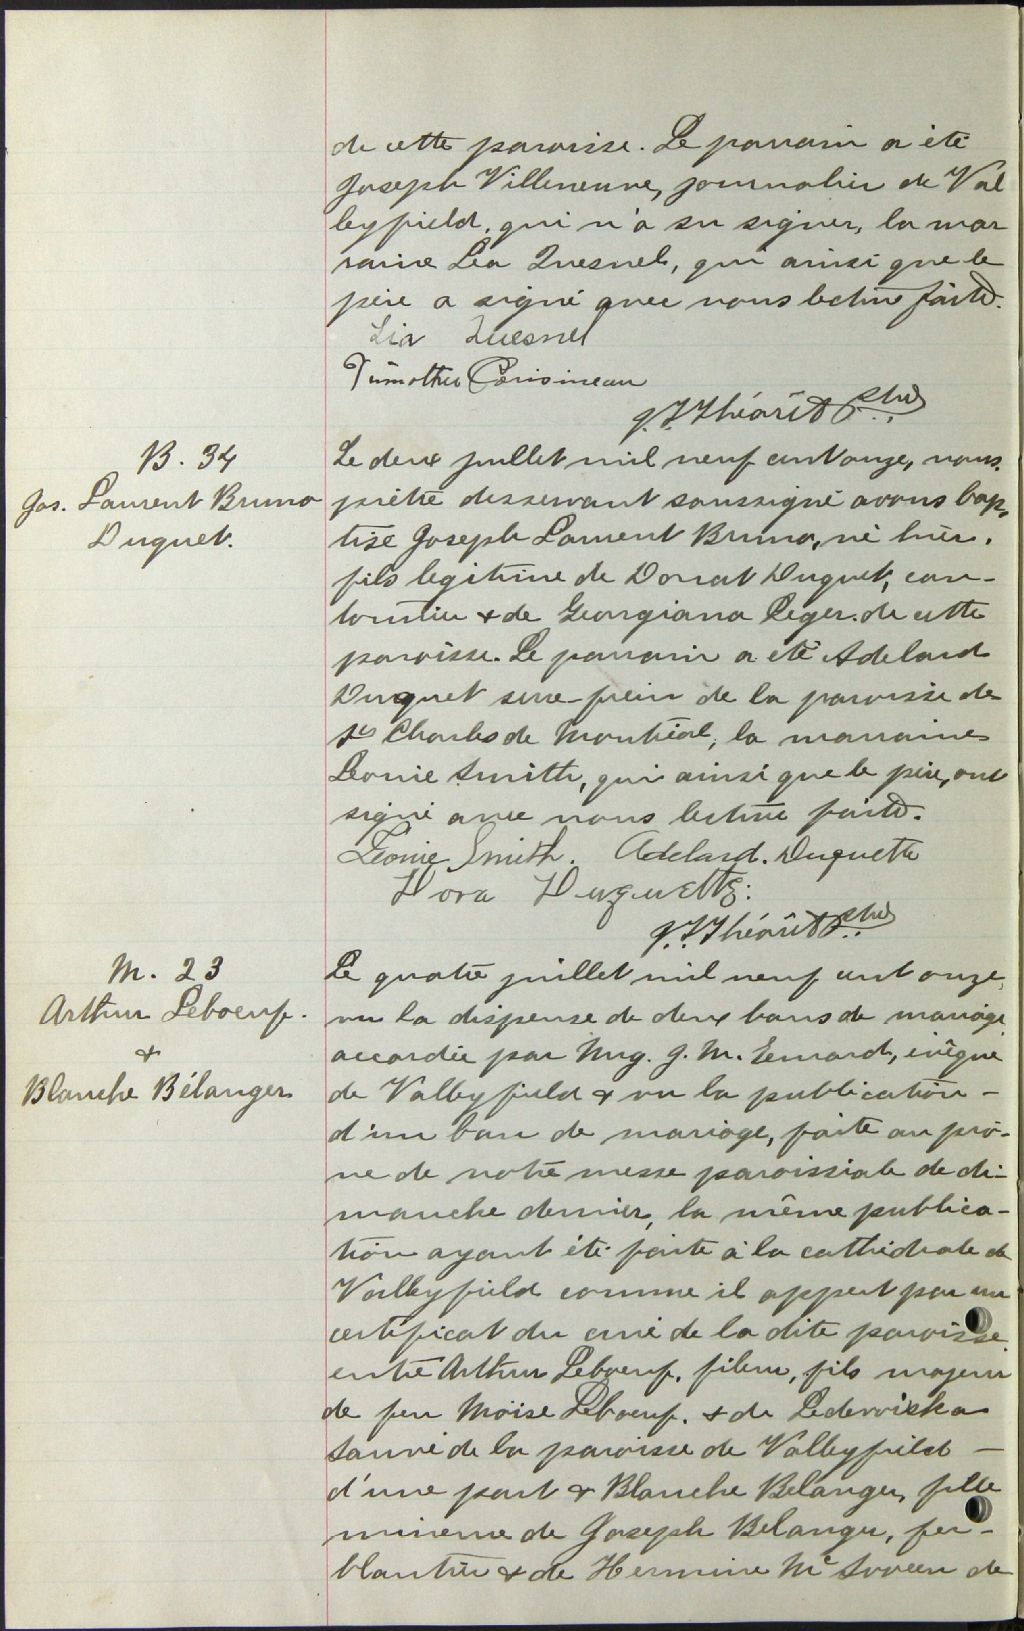 de cette paroisse. Le parrain a été
Joseph Villeneuve, journalier de Val
leyfield, qui n'a su signer, la mar
raine Lea Quesnel, qui ainsi que le
père a signé avec nous lecture faite.
Lia Quesnel
Timothee
J. Théorêt Ptre
B. 34
Jos. Laurent Bruno
Duquet.
Le deux juillet mil neuf cent onze, nous,
prêtre desservant soussigné avons bap,
tisé Joseph Laurent Bruno, né hier,
fils legitime de Donat Duquet, can-
tonnier & de Georgiana Leger. de cette
paroisse. Le parrain a été Adelard
Duquet serre-frein de la paroisse de
St Charles de Montréal, la marraine
Leonie Smith, qui ainsi que le père, ont
signé avec nous lecture faite.
Leonie Smith. Adelard. Duquette
Dora Duquette.
J. Théorêt Ptre
M. 23
Arthur Leboeuf.
&
Blanche Bélanger
Le quatre juillet mil neuf cent onze,
vu la dispense de deux bans de mariage
accordée par Mrg. J. M. Emard, évêque
de Valleyfield & vu la publication -
d'un ban de mariage, faite au prô-
ne de notre messe paroissiale de di-
manche dernier, la même publica-
tion ayant été faite à la cathédrale de
Valleyfield comme il appert par un
certificat du curé de la dite paroisse
entre Arthur Leboeuf, fileur, fils majeur
de feu Moïse Leboeuf. & de
Sauvé de la paroisse de Valleyfield -
d'une part & Blanche Belanger, fille
mineure de Joseph Belanger, fer-
blantier & de Hermine de